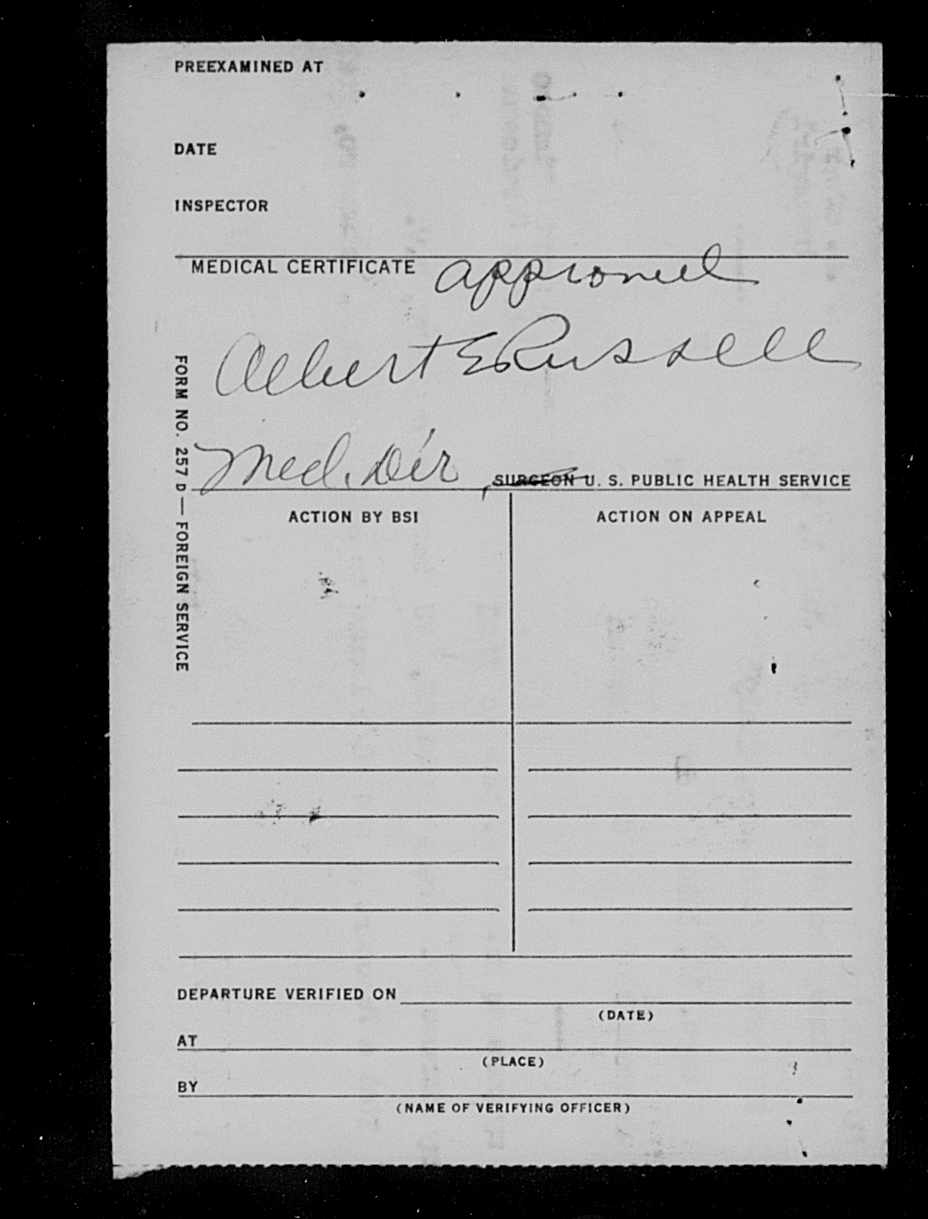 PREEXAMINED AT
DATE
INSPECTOR
MEDICAL CERTIFICATE approved
Albert E Russell
Med. Dir, SURGEON U. S. PUBLIC HEALTH SERVICE
FORM NO. 257 D — FOREIGN SERVICE
ACTION BY BSI
ACTION ON APPEAL
DEPARTURE VERIFIED ON
(DATE)
AT
(PLACE)
BY
(NAME OF VERIFYING OFFICER)